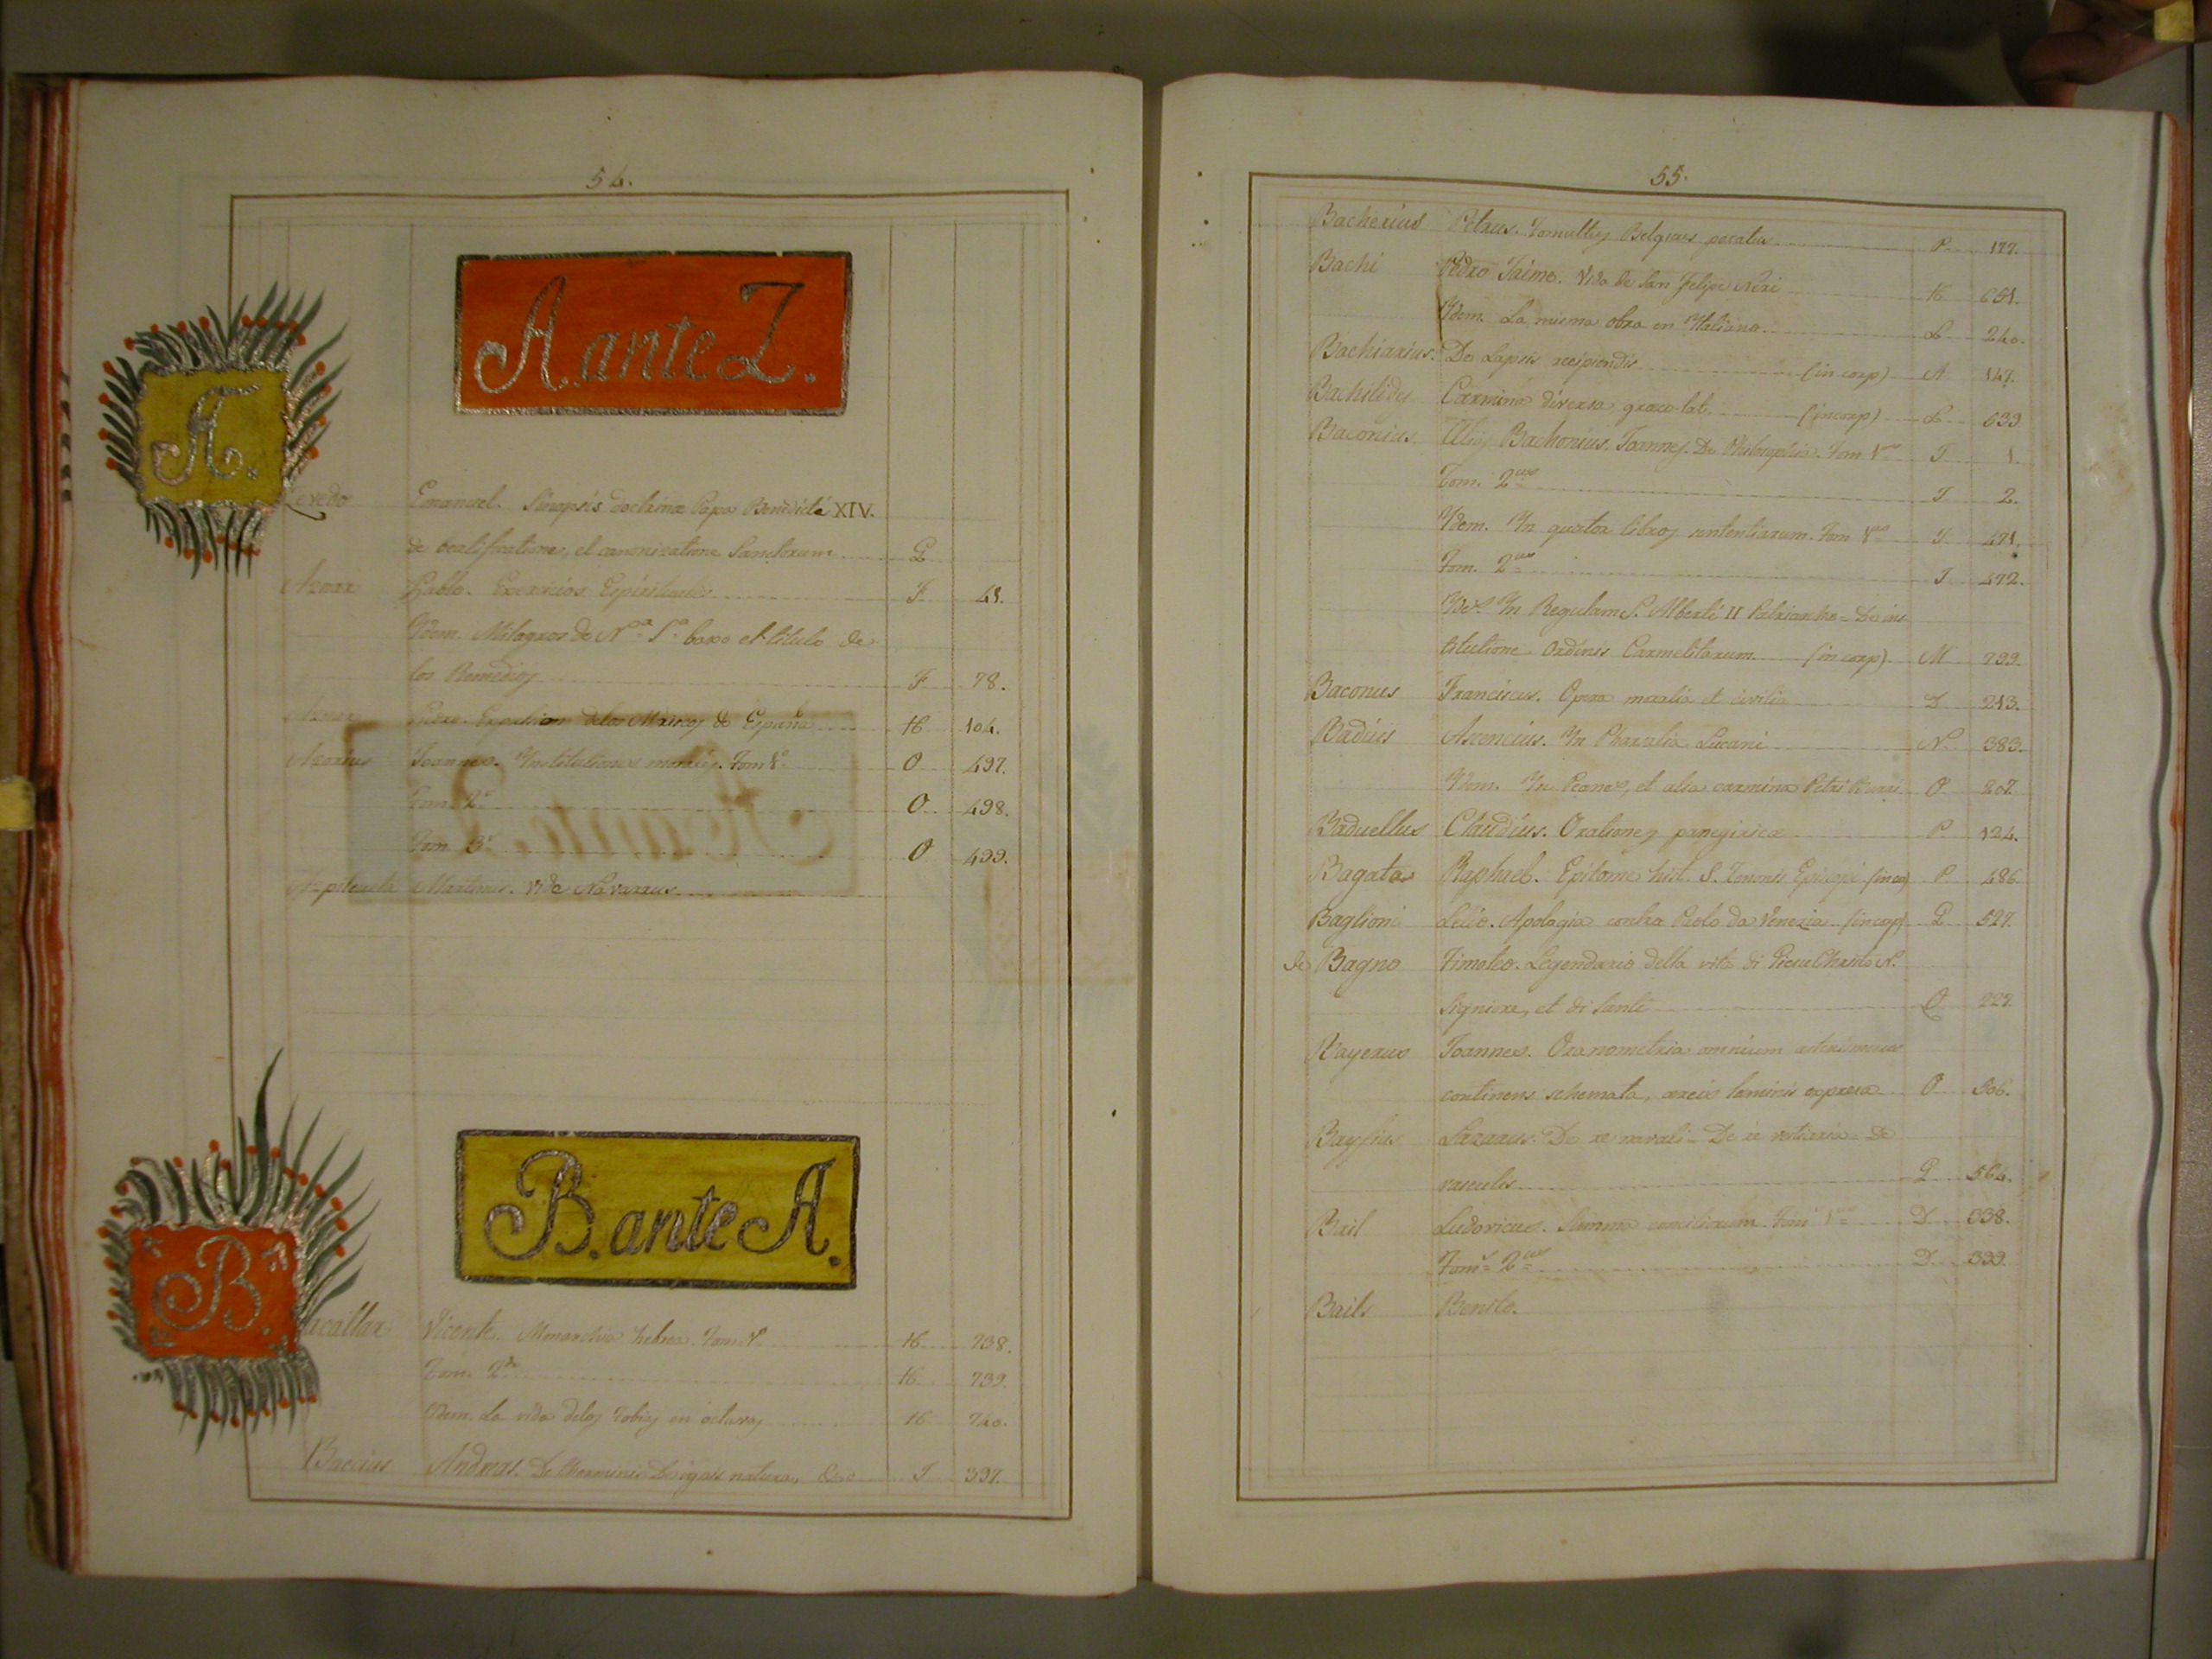 54.
A. ante Z.
A.
Emanuel. Sinopsis doctrinæ Papæ Benedicti XIV.
de beatificatione, et canonizatione Sanctorum G
Aznar Pablo. Exercicios Espirituales F 41.
Ydem. Milagros de N.ª S.ª baxo el titulo de
los Remedios F 78.
Aznar Expulsion delos Moriscos de España 16 104.
Azorius Joannes. Ynstitutiones morales. Tom 1º O 497.
Tom. 2º O 498.
Tom. 3º O 499.
Azpilcueta Martinus. Vide Navarrus
B. ante A.
B.
acallar Vicente. Monarchia hebrea. Tom. 1º 16 738.
Tom. 2º 16 739.
Ydem. La vida delos Tobias en octavas 16 740.
Baccius Andreas. De Thermis natura, T 397.
55.
Bacherius Petrus. Tomultus Belgicus pacatus P 177.
Bachi Pedro Jaime. Vida de San Felipe Neri 16 651.
Ydem. La misma obra en Ytaliano L 240.
Bachiarius. De Lapsis recipiendis (in corp) A 147.
Bachilides Carmina diversa græco-lat. (in corp) L 639
Baconius. Alias Bachonius. Joannes. De Philosophia. Tom 1us T 1.
Tom. 2us T 2.
Ydem. Yn quator libros sententiarum. Tom 1us T 471.
Tom. 2us T 472.
Yde. Yn Regulam S. Alberti II Patriarchæ = De ins
titutione Ordinis Carmelitarum (in corp) M 799.
Baconus Franciscus. Opera moralia et civilia 213.
Badius Ascencius. Yn Pharsalia Lucani N 383.
Ydem. Yn Peanes, et alia carmina Petri Burri O 207.
Baduellus Claudius. Orationes panegiricæ P 124.
Bagata Raphael. Epitome hist. S. Zenonis Episcopi P 486
Baglioni Lelio. Apologia contra Paolo da Venezia (in corp) 527.
de Bagno Timoteo. Legendario della vita di Giesu Christo N.
Signiore, et di Santi 227.
Bayerus Joannes. Oranometria omnium asterismorum
continens schemata, æreis laminis expresa O 506.
Bayfius Lazarus. De re navali = De re vestiaria = De
vasculis 564.
Bail Ludovicus. Summa conciliorum. Tom. 1us D 338.
Tom. 2us D 339.
Bails Benito.